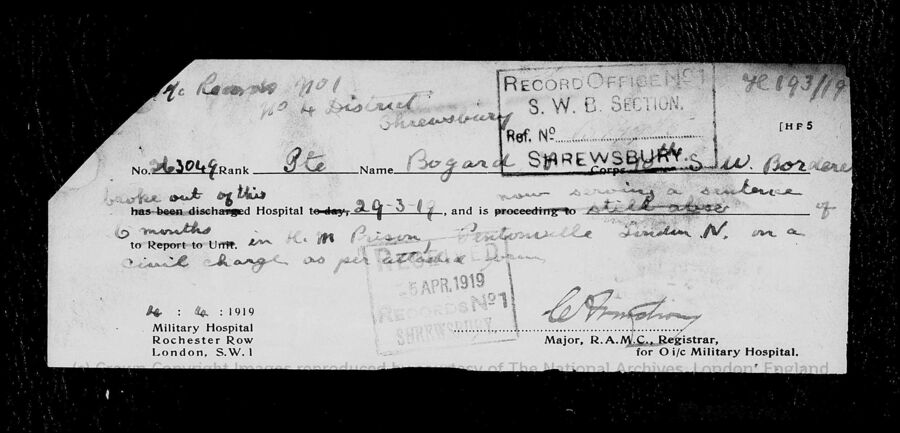 i/c Records No 1
No 4 District
Shrewsbury
RECORD OFFICE No 1
S. W. B. SECTION.
Ref. No
SHREWSBURY.
H 193/19
[H F 5
No. 263049 Rank Pte Name Bogard Corps 10th S. W. Borderers
broke out of this now serving a sentence
has been discharged Hospital to-day, 29-3-19, and is proceeding to still absent of
6 months
to Report to Unit. in H. M Prison, Pentonville London N. on a
civil charge as per attached
RECEIVED
-5 APR. 1919
RECORDS No 1
SHREWSBURY
4 : 4 : 1919
Military Hospital
Rochester Row
London, S.W.1
Major, R.A.M.C., Registrar,
for O i/c Military Hospital.
(c) Crown Copyright Images reproduced by courtesy of The National Archives, London, England